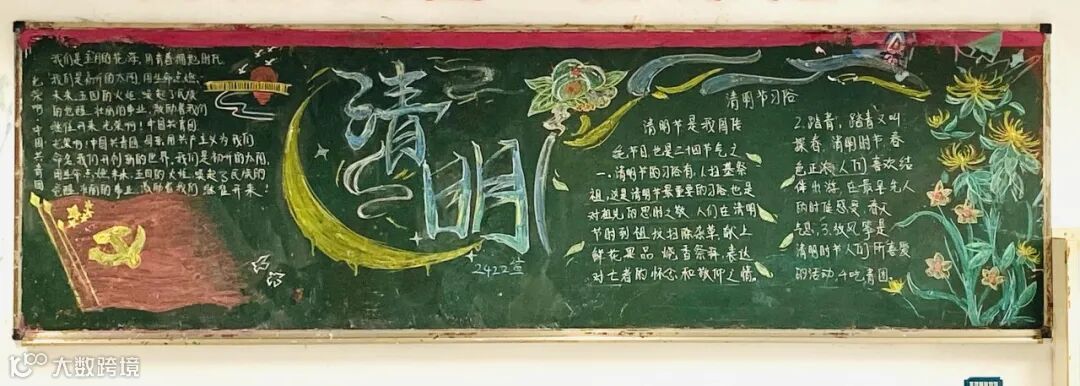 光荣啊中国共青团
我们是五月的花海,用青春拥抱时代
我们是初升的太阳,用生命点燃
未来,五四的火炬,唤起了民族
的觉醒,壮丽的事业,激励着我们
继往开来,光荣啊!中国共青团
光荣啊!中国共青团,母亲用共产主义为我们
命名我们开创新的世界,我们是初升的太阳,
用生命点燃未来,五四的火炬,唤起民族的
觉醒,壮丽的事业,激励着我们继往开来!
清明
2422宣
清明节习俗
清明节是我国传
统节日也是二十四节气之
一.清明节的习俗有1.扫墓祭
祖,这是清明节最重要的习俗也是
对祖先的思时之敬,人们在清明
节时到祖坟扫除杂草,献上
鲜花果品,烧香祭拜,表达
对亡者的怀念和敬仰之情.
2.踏青,踏青又叫
探春,清明时节,春
色正浓,人们喜欢结
伴出游,在最早先人
的时候感受,春天
气息,3.放风筝是
清明时节人们所喜爱
的活动,4.吃青团.
大数跨境